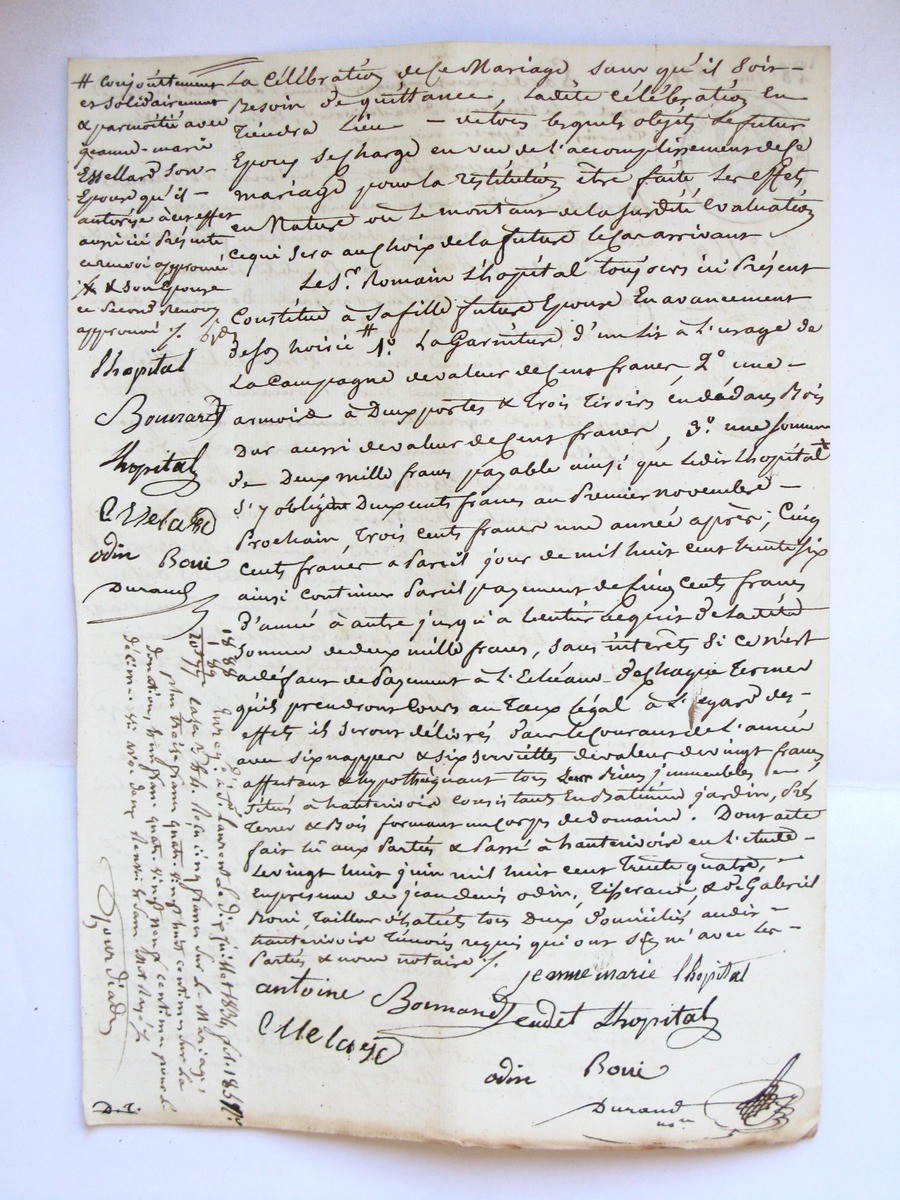 # Conjointtement
et solidairement
& par moitié avec
jeanne-marie
Essellard son
Epouse qu'il -
autorise à cet effet
aussi ici présente
ce renvoi approuvé
& son Epouse
ce Second Renvoy
approuvé /.
lhopital
Bounard
Lhopital
Esselard
odin Boui
Durand
La Célébration de ce Mariage sans qu'il soit -
Besoin de quittance Ladite Célébration en
Tiendra Lieu - de tous lesquels objets Le futur
Epoux se charge en vue de l'accomplissement de ce
mariage pour la restitution être faite des effets
en Nature ou Le montant de la susdite évaluation
ce qui sera au Choix de la future le Cas arrivant
Le Sr. Romain Lhopital toujours ici Présent
Constitue à Sa fille future Epouse En avancement
de son hoirie # 1o. La Garniture d'un Lit à L'usage de
La Campagne de valeur de Cent francs 2o une -
armoire à Deux portes & Trois Tiroirs en dedans Bois
Dur aussi de valeur de Cent francs, 3o. une somme
de Deux mille francs payable ainsi que Ledit Lhopital
s'y oblige Deux cents francs au Premier novembre -
Prochain, Trois Cents francs une année après; Cinq
cents francs a Pareil jour de mil huit cent trente six
ainsi continuer Pareil payement de Cinq Cents francs
d'année à autre jusqu'à L'entier acquit de Ladite
Somme de deux mille francs, Sans intérêts Si ce n'est
a défaut de Payement à L'Echéance de chaque Terme
qu'ils prendront Cours au Taux Légal à L'egard des -
effets il seront délivrés dans le Courant de L'année
avec six nappes & six serviettes de valeur de vingt francs
affectant & hypothéquant tous Leurs Biens immeubles -
situés à hauterivoire consistants En Batiment jardin, Prés
Terres & Bois formant un Corps de domaine. Dont acte
fait Lû aux Parties & Passé à hauterivoire en L'etude -
Le vingt huit juin mil huit cent Trente quatre, -
En présence de jean denis odin, Tisserand, & de Gabriel
Boui, Tailleur d'habits tous Deux Domiciliés audit -
hauterivoire Témoins requis qui ont signé avec les -
Parties & nous notaire /.
jeanne marie lhopital
antoine Bounard
Lhopital
Esselard
odin Boui
Durand
nore
Enreg. à St. Laurent Le dix juillet 1834
cinq francs Sur le Mariage
plus trois francs quatre vingt huit centimes Sur la
donation,
D. T.